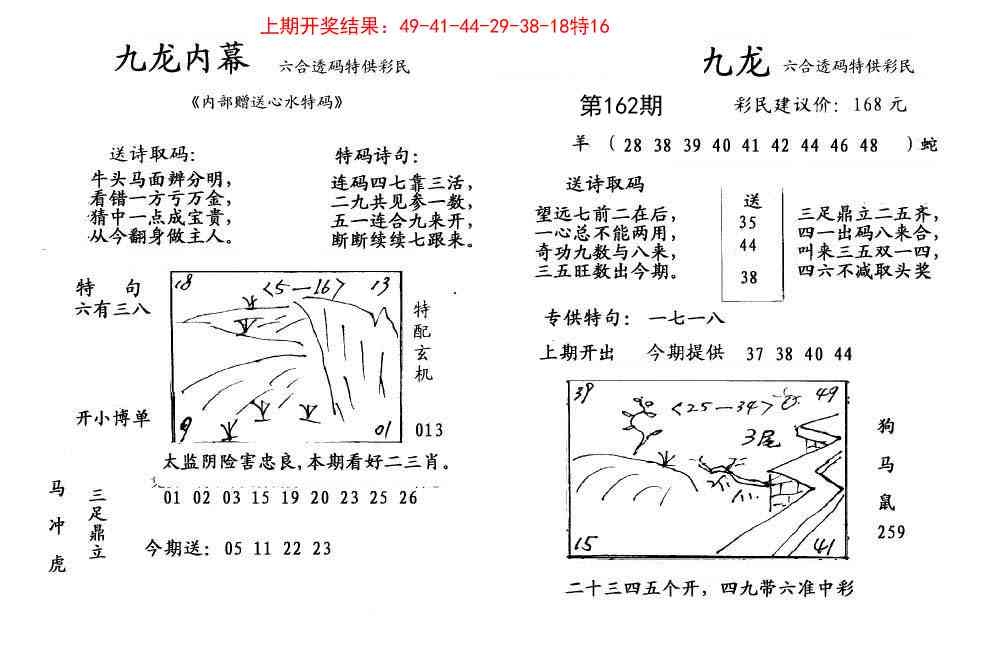 上期开奖结果：49-41-44-29-38-18特16
九龙内幕 六合透码特供彩民
《内部赠送心水特码》
送诗取码：
牛头马面辨分明，
看错一方亏万金，
猜中一点成宝贵，
从今翻身做主人。
特码诗句：
连码四七靠三活，
二九共见参一数，
五一连合九来开，
断断续续七跟来。
特 句
六有三八
开小博单
18 <5—16> 13
9 01
特配玄机
013
太监阴险害忠良，本期看好二三肖。
01 02 03 15 19 20 23 25 26
马冲虎
三足鼎立
今期送：05 11 22 23
九龙 六合透码特供彩民
第162期 彩民建议价：168元
羊（28 38 39 40 41 42 44 46 48 ）蛇
送诗取码
望远七前二在后，
一心总不能两用，
奇功九数与八来，
三五旺数出今期。
送
35
44
38
三足鼎立二五齐，
四一出码八来合，
叫来三五双一四，
四六不减取头奖
专供特句：一七一八
上期开出 今期提供 37 38 40 44
39 <25—34> 49
3尾
15 41
狗
马
鼠
259
二十三四五个开，四九带六准中彩